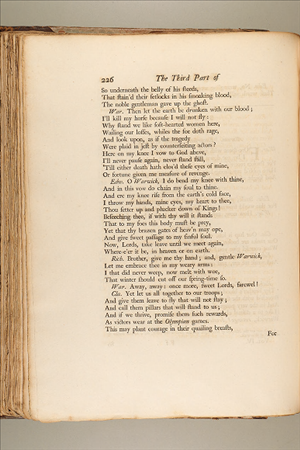 226 The Third Part of
So underneath the belly of his steeds,
That stain'd their fetlocks in his smoaking blood,
The noble gentleman gave up the ghost.
War. Then let the earth be drunken with our blood;
I'll kill my horse because I will not fly:
Why stand we like soft-hearted women here,
Wailing our losses, whiles the foe doth rage,
And look upon, as if the tragedy
Were plaid in jest by counterfeiting actors?
Here on my knee I vow to God above,
I'll never pause again, never stand still,
'Till either death hath clos'd these eyes of mine,
Or fortune given me measure of revenge.
Edw. O Warwick, I do bend my knee with thine,
And in this vow do chain my soul to thine.
And ere my knee rise from the earth's cold face,
I throw my hands, mine eyes, my heart to thee,
Thou setter up and plucker down of Kings!
Beseeching thee, if with thy will it stands
That to my foes this body must be prey,
Yet that thy brazen gates of heav'n may ope,
And give sweet passage to my sinful soul.
Now, Lords, take leave until we meet again,
Where-e'er it be, in heaven or on earth.
Rich. Brother, give me thy hand; and, gentle Warwick,
Let me embrace thee in my weary arms:
I that did never weep, now melt with woe,
That winter should cut off our spring-time so.
War. Away, away: once more, sweet Lords, farewel!
Cla. Yet let us all together to our troops;
And give them leave to fly that will not stay;
And call them pillars that will stand to us;
And if we thrive, promise them such rewards,
As victors wear at the Olympian games.
This may plant courage in their quailing breasts,
For